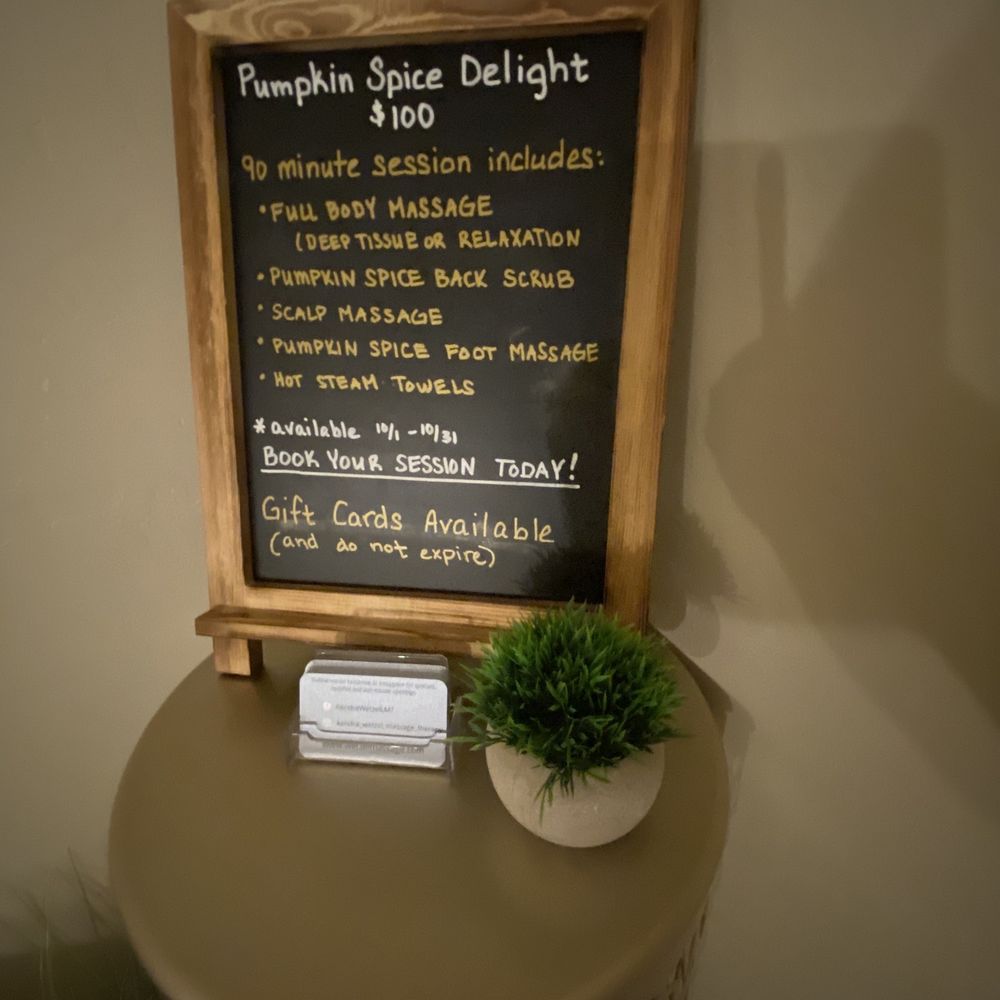 Pumpkin Spice Delight
$100
90 minute session includes:
• FULL BODY MASSAGE
(DEEP TISSUE OR RELAXATION
• PUMPKIN SPICE BACK SCRUB
• SCALP MASSAGE
• PUMPKIN SPICE FOOT MASSAGE
• HOT STEAM TOWELS
*available 10/1 - 10/31
BOOK YOUR SESSION TODAY!
Gift Cards Available
(and do not expire)